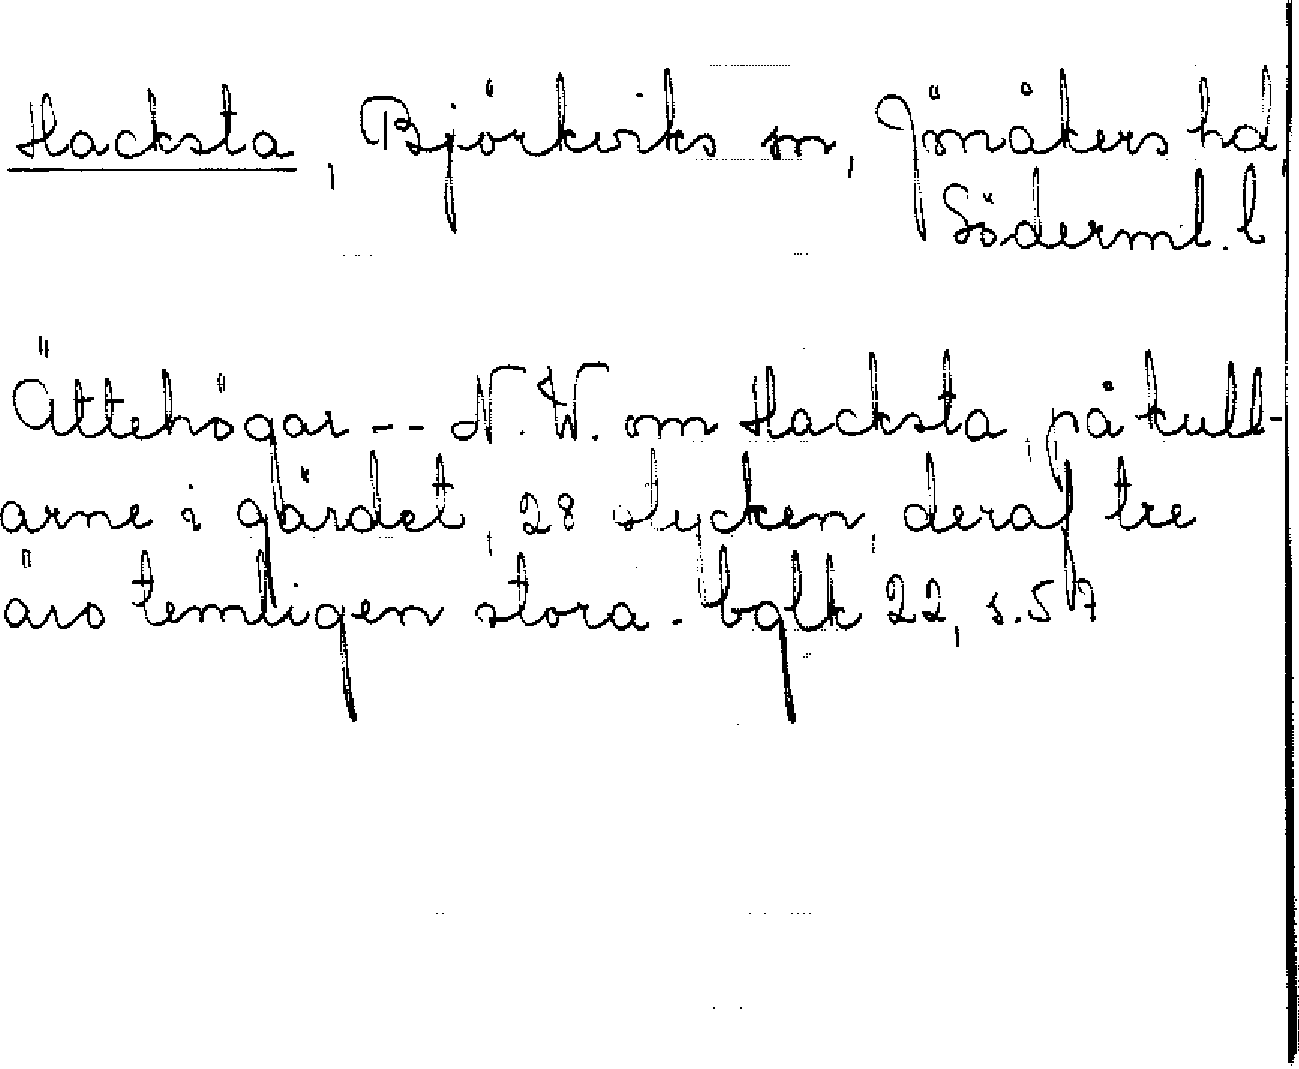 Hacksta, Björkviks sn, Jönåkers hd,
Söderml. l
Ättehögar -- N. W. om Hacksta, på kull-
arne i gärdet, 28 stycken, deraf tre
äro temligen stora. bglk 22, s. 57